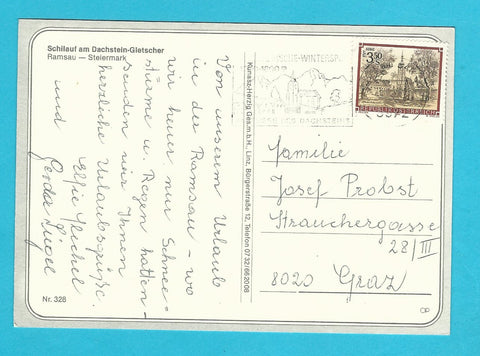 Schilauf am Dachstein-Gletscher
Ramsau — Steiermark
Von unserem Urlaub
in der Ramsau – wo
wir heuer nur Schnee-
stürme u. Regen hatten –
senden wir Ihnen
herzliche Urlaubsgrüße.
Elfie
und Gerda
Nr. 328
Kunsto: Herzig Ges.m.b.H., Linz, Bürgerstraße 12, Telefon 0732/662006
WINTERSP
DES DACHSTEINS
3.50
REPUBLIK ÖSTERREICH
Familie
Josef Probst
Strauchergasse
28/III
8020 Graz